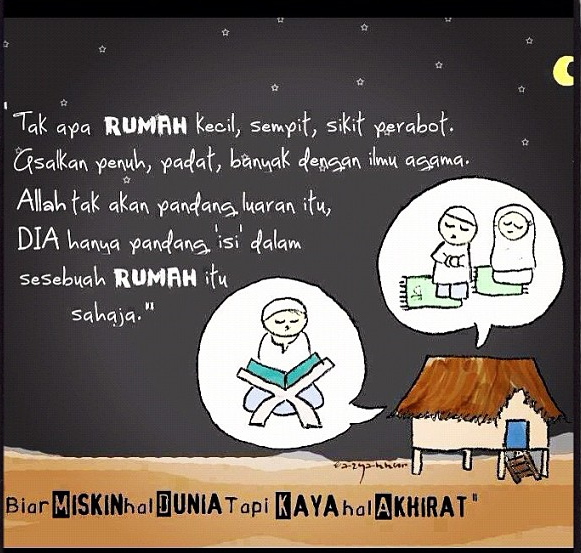 "Tak apa RUMAH kecil, sempit, sikit perabot.
Asalkan penuh, padat, banyak dengan ilmu agama.
Allah tak akan pandang luaran itu,
DIA hanya pandang 'isi' dalam
sesebuah RUMAH itu
sahaja."
Biar MISKIN hal DUNIA Tapi KAYA hal AKHIRAT"